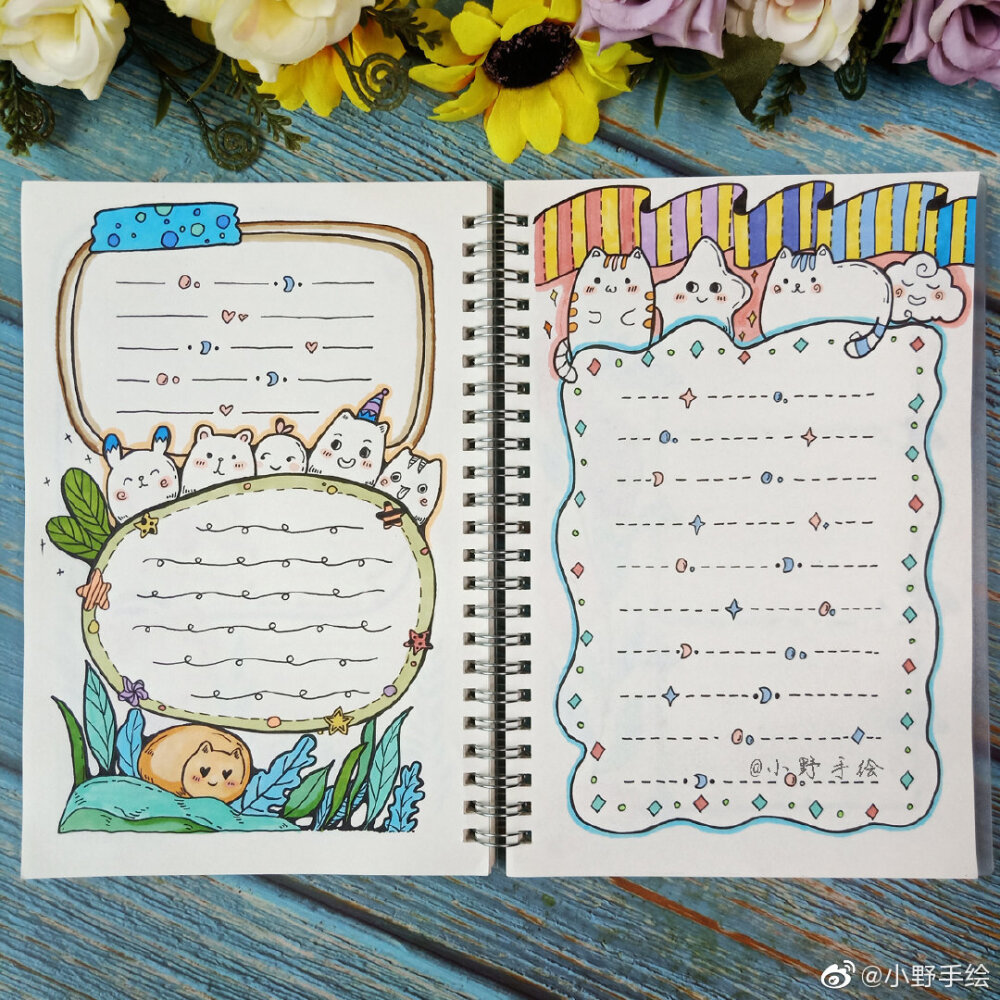 @小野手绘
@小野手绘